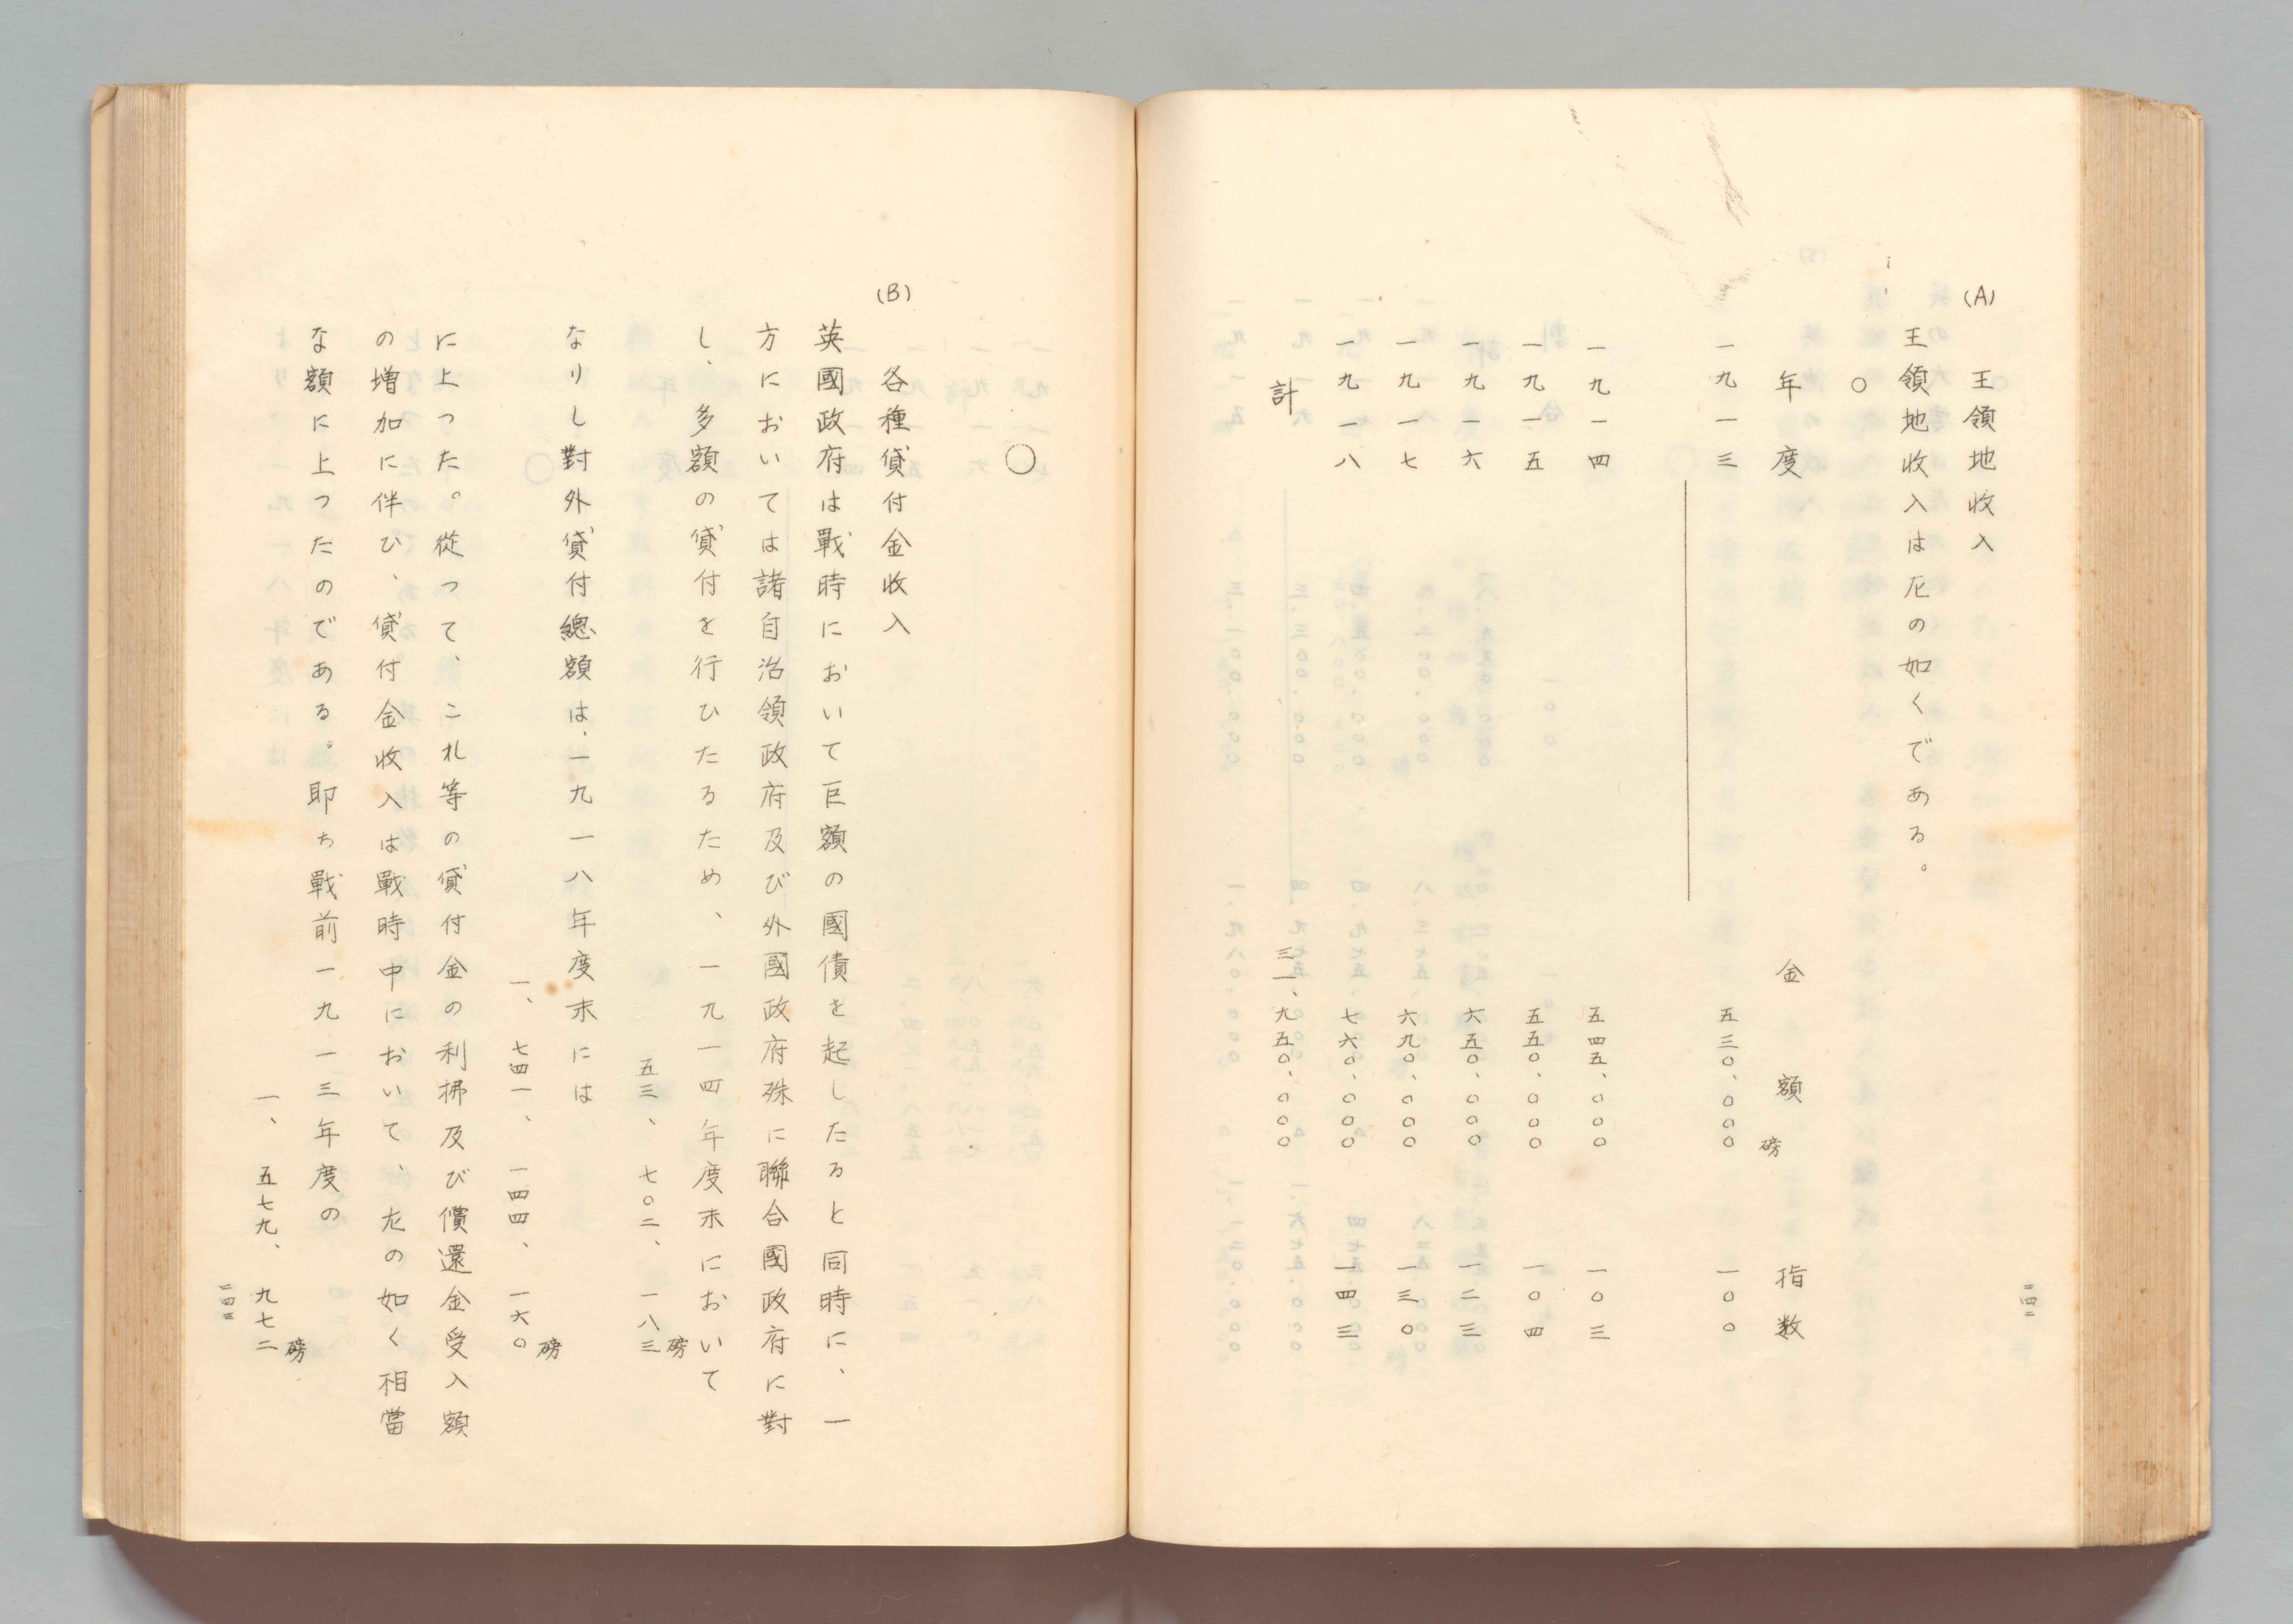 (A) 王領地收入
王領地收入は左の如くである。
○
年度 金額 指数
磅
一九一三 五三〇、〇〇〇 一〇〇
一九一四 五四五、〇〇〇 一〇三
一九一五 五五〇、〇〇〇 一〇四
一九一六 六五〇、〇〇〇 一二三
一九一七 六九〇、〇〇〇 一三〇
一九一八 七六〇、〇〇〇 一四三
計 三一、九五〇、〇〇〇
二四二
○
(B) 各種貸付金收入
英國政府は戰時において巨額の國債を起したると同時に、一
方においては諸自治領政府及び外國政府殊に聯合國政府に對
し、多額の貸付を行ひたるため、一九一四年度末において
五三、七〇二、一八三磅
なりし對外貸付總額は、一九一八年度末には
一、七四一、一四四、一六〇磅
に上つた。從つて、これ等の貸付金の利拂及び償還金受入額
の増加に伴ひ、貸付金收入は戰時中において、左の如く相當
な額に上つたのである。即ち戰前一九一三年度の
一、五七九、九七二磅
二四三